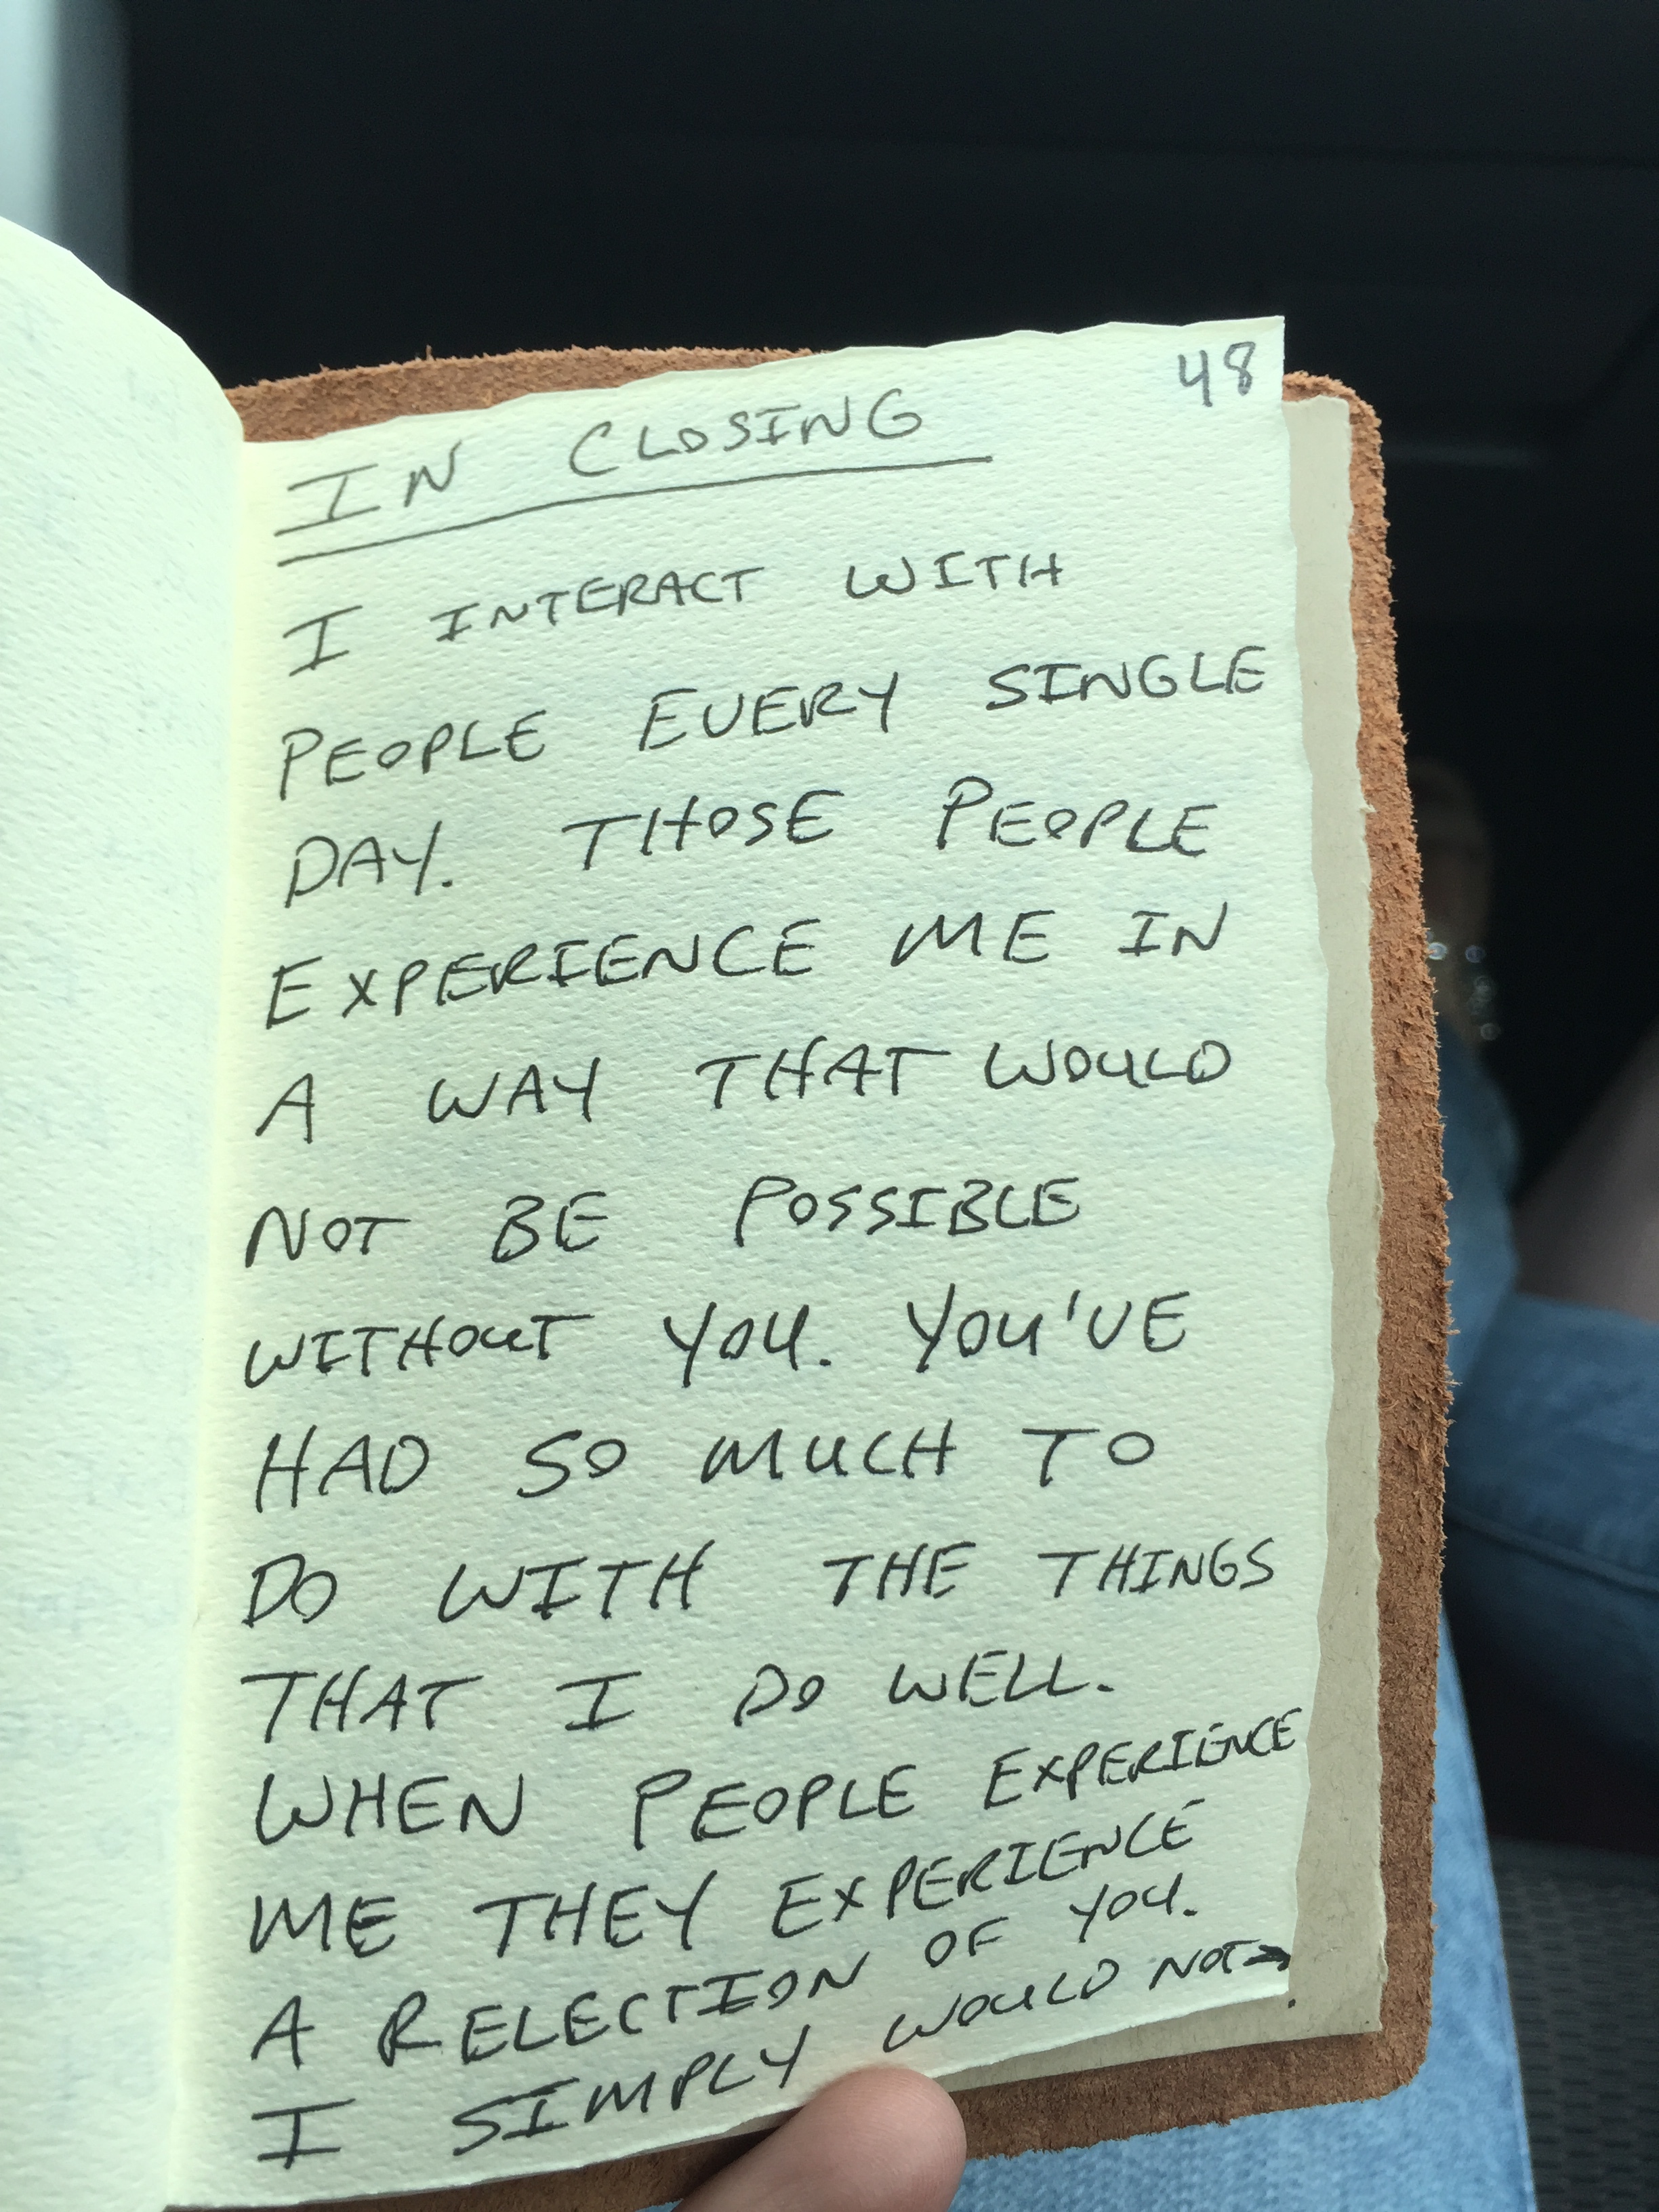 48
IN CLOSING
I INTERACT WITH
PEOPLE EVERY SINGLE
DAY. THOSE PEOPLE
EXPERIENCE ME IN
A WAY THAT WOULD
NOT BE POSSIBLE
WITHOUT YOU. YOU'VE
HAD SO MUCH TO
DO WITH THE THINGS
THAT I DO WELL.
WHEN PEOPLE EXPERIENCE
ME THEY EXPERIENCE
A RELECTION OF YOU.
I SIMPLY WOULD NOT→